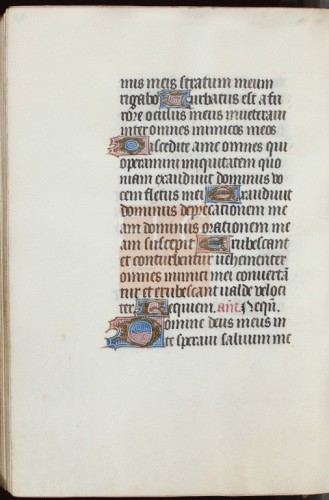 mis meis stratum meum
rigabo Turbatus est a fu
rore oculus meus inveteravi
inter omnes inimicos meos
Discedite a me omnes qui
operamini iniquitatem quo
niam exaudivit dominus vo
cem fletus mei Exaudivit
dominus deprecationem me
am dominus orationem me
am suscepit Erubescant
et conturbentur vehementer
omnes inimici mei convertā
tur et erubescant valde veloci
ter Requiem. añ. Neqũ.
Domine deus meus in
te speravi salvum me